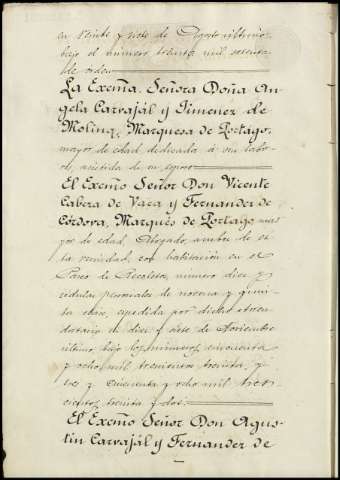 en veinte y siete de Agosto último,
bajo el número treinta mil setenta
de orden
La Excma. Señora Doña An
gela Carvajál y Jimenéz de
Molina, Marquesa de Portago,
mayor de edad, dedicada á sus labo
res, asistida de su esposo
El Excmo Señor Don Vicente
Cabeza de Vaca y Fernandez de
Córdova, Marqués de Portago, ma
yor de edad, Abogado, ambos de es
ta vecindad, con habitación en el
Paseo de Recoletos, número diez y
cédulas personales de novena y quin
ta clase, expedida por dicho arren
datario en diez y siete de Noviembre
último, bajo los números cincuenta
y ocho mil trescientos treinta y
tres y cincuenta y ocho mil tres
cientos treinta y dos.
El Excmo Señor Don Agus
tín Carvajál y Fernández de